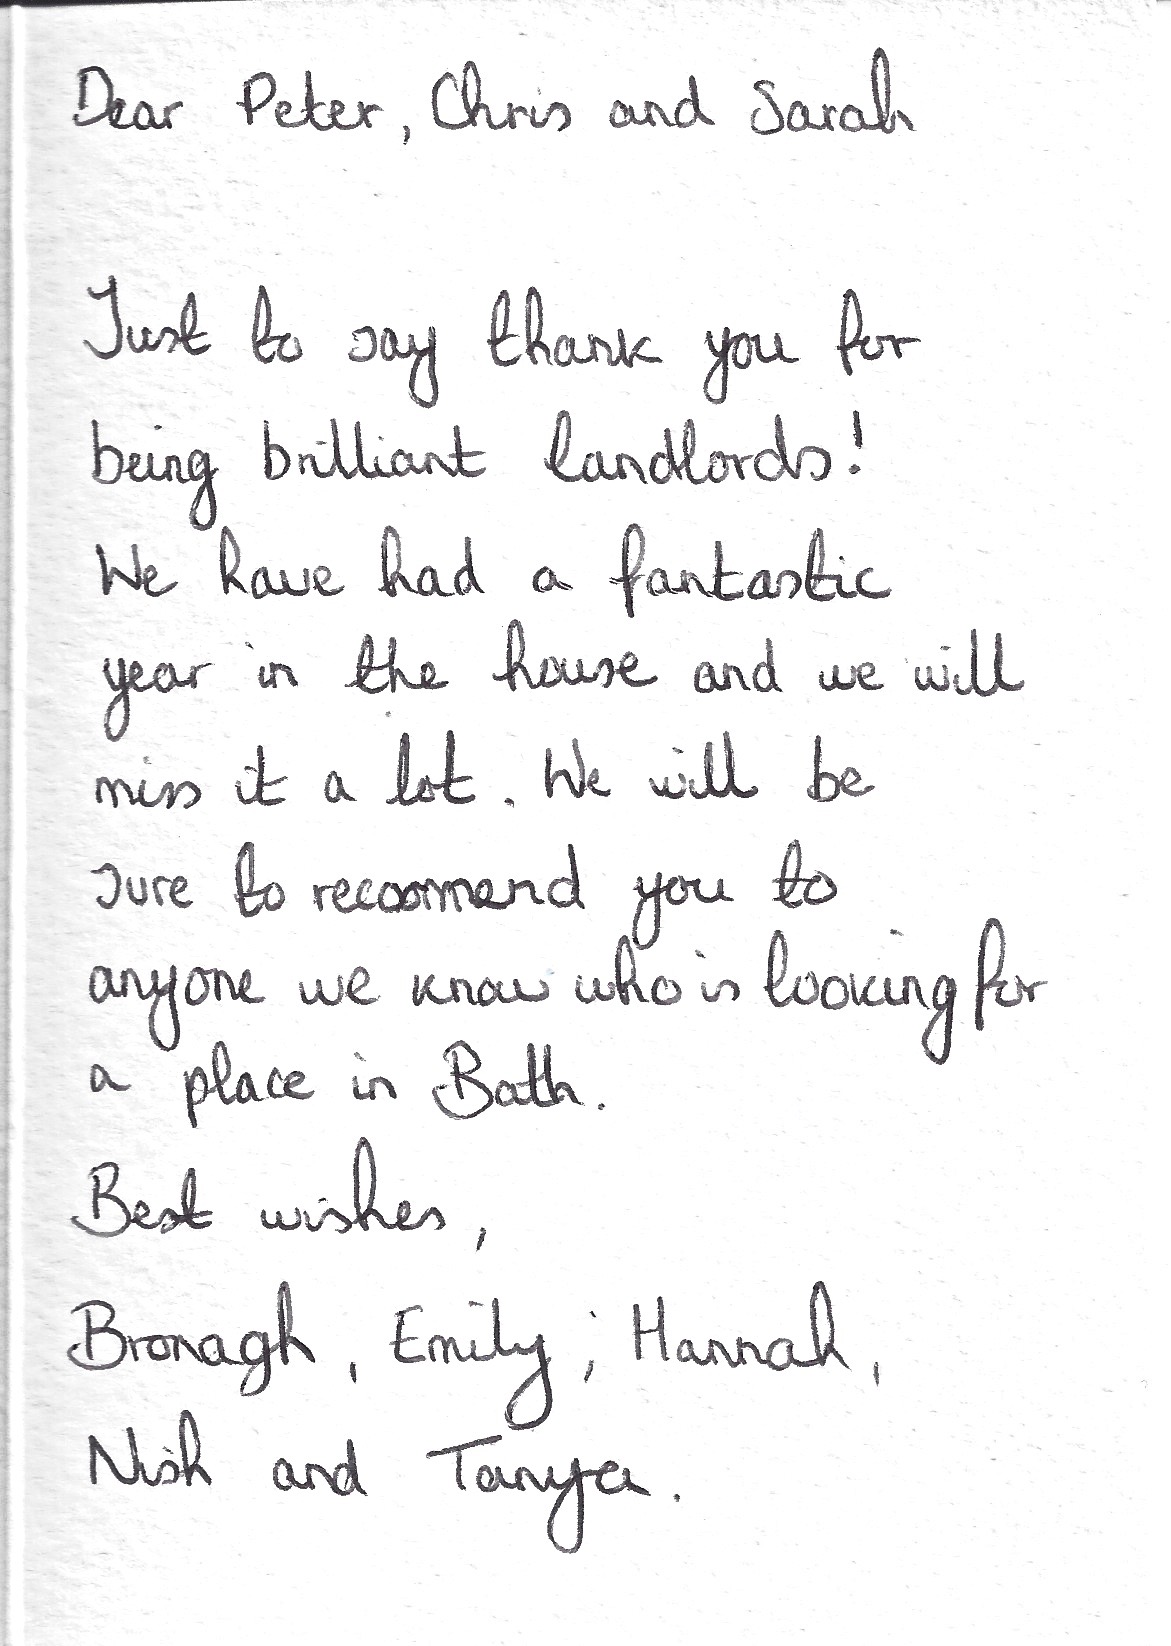 Dear Peter, Chris and Sarah
Just to say thank you for
being brilliant landlords!
We have had a fantastic
year in the house and we will
miss it a lot. We will be
sure to recoommend you to
anyone we know who is looking for
a place in Bath.
Best wishes,
Bronagh, Emily, Hannah,
Nish and Tanya.